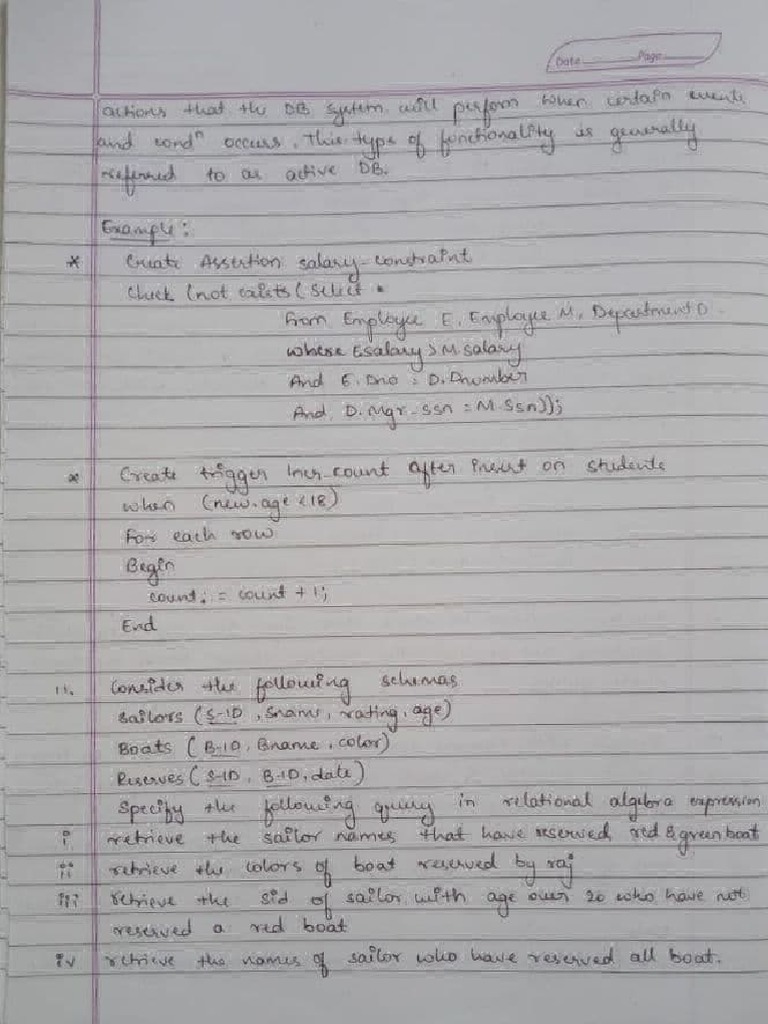 Date Page
actions that the DB system will perform when certain events
and condⁿ occurs. This type of functionality is generally
referred to as active DB.
Example :
* Create Assertion salary-constraint
Check (not exists (Select *
From Employee E, Employee M, Department D
where E.salary > M.salary
And E.Dno = D.Dnumber
And D.Mgr-ssn = M.Ssn));
* Create trigger incr-count after insert on students
when (new.age < 18)
For each row
Begin
count := count + 1;
End
11. Consider the following schemas
Sailors (S-ID, Sname, rating, age)
Boats (B-ID, Bname, color)
Reserves (S-ID, B-ID, date)
Specify the following query in relational algebra expression
i retrieve the sailor names that have reserved red & green boat
ii retrieve the colors of boat reserved by raj
iii retrieve the sid of sailor with age over 20 who have not
reserved a red boat
iv retrieve the names of sailor who have reserved all boat.